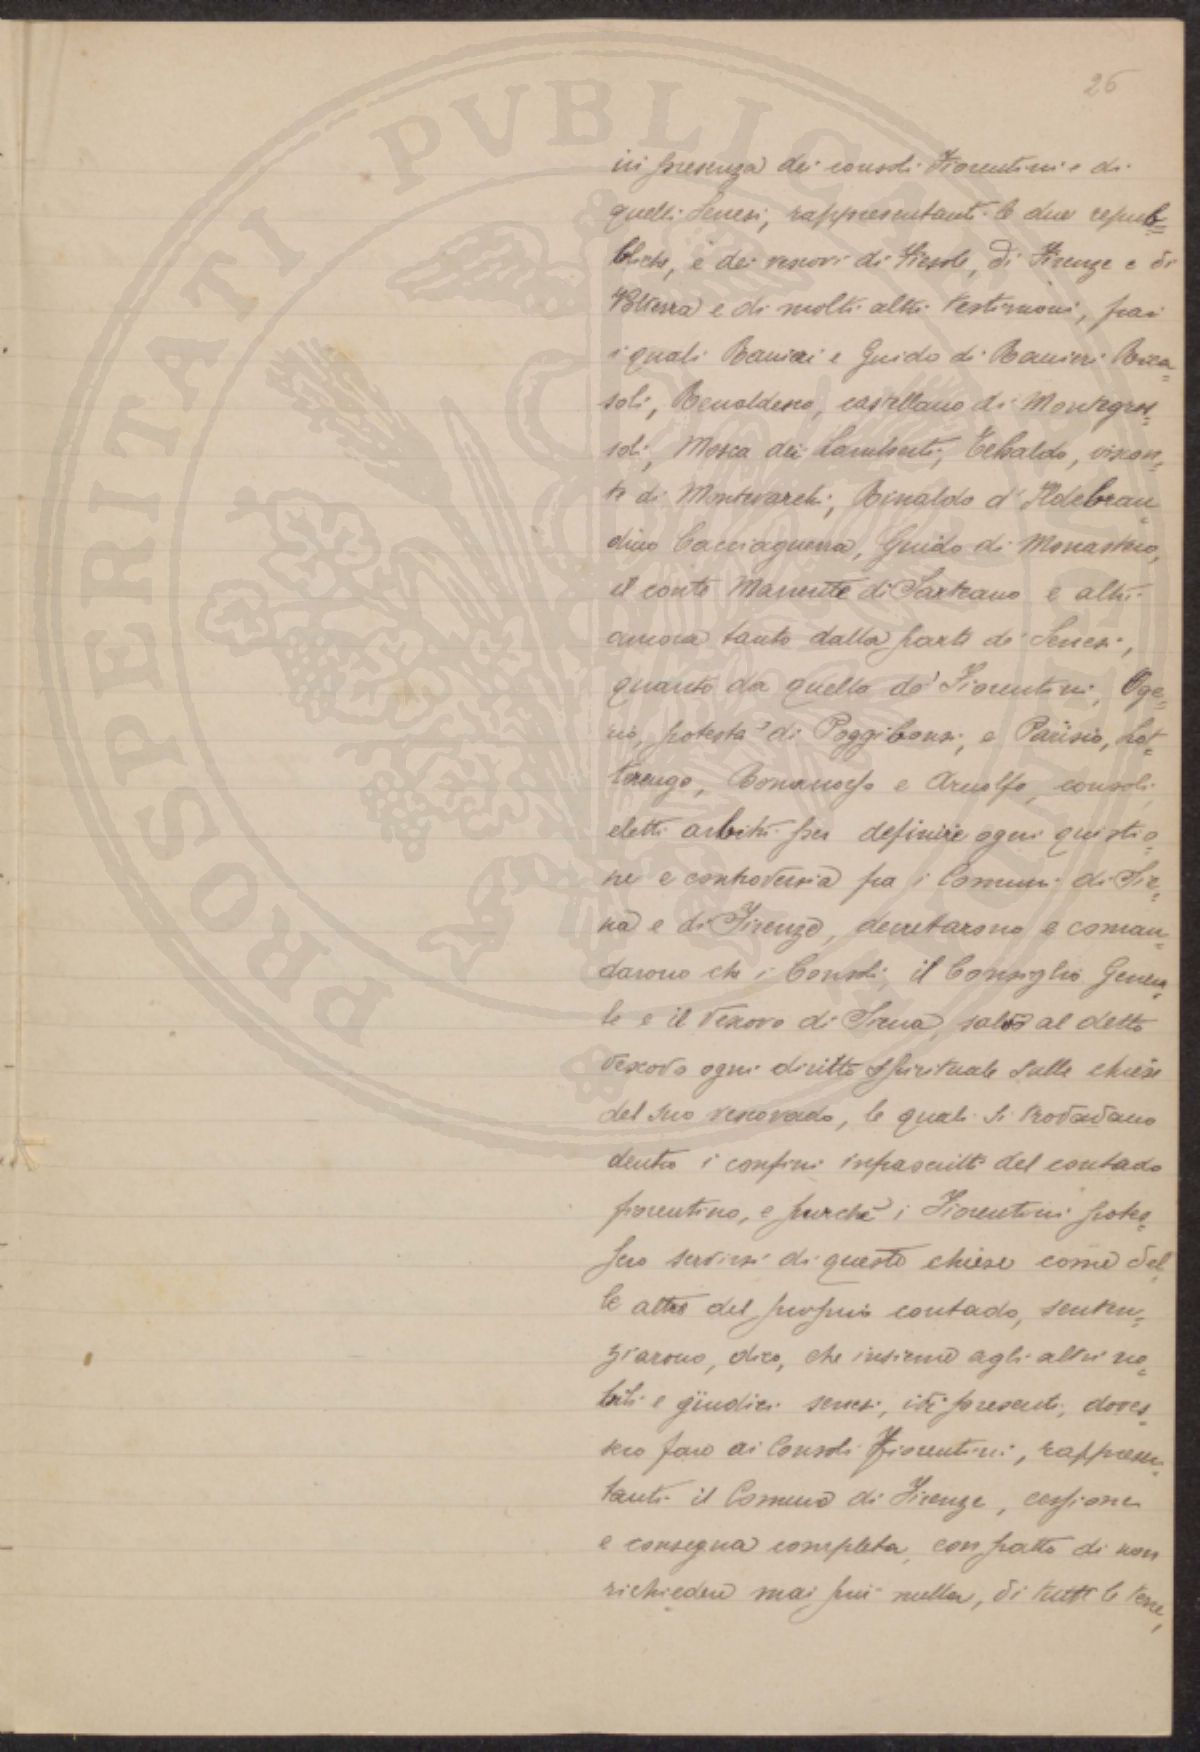 26
in presenza dei consoli Fiorentini e di
quelli Senesi, rappresentanti le due repub=
bliche, e dei vescovi di Fiesole, di Firenze e di
Volterra e di molti altri testimoni, frai
i quali Ranieri e Guido di Ranieri Rica=
soli, Renaldesco, castellano di Montegros=
soli, Mosca dei Lamberti, Tebaldo, viscon=
te di Montevarchi, Rinaldo d' Ildebran=
dino Cacciaguerra, Guido di Monastero,
il conte Manente di Sarteano e altri
ancora tanto dalla parte de' Senesi,
quanto da quella de' Fiorentini, Oge=
rio, potestà di Poggibonsi, e Parisio, Lot=
teringo, e Arnolfo, consoli,
eletti arbitri per definire ogni questio=
ne e controversia fra i Comuni di Sie=
na e di Firenze, decretarono e coman=
darono che i Consoli, il Consiglio Genera=
le e il Vescovo di Siena, salvo al detto
Vescovo ogni diritto spirituale sulle chiese
del suo vescovado, le quali si trovavano
dentro i confini infrascritti del contado
fiorentino, e purchè i Fiorentini potes=
sero servirsi di queste chiese come del=
le altre del proprio contado, senten=
ziarono, dico, che insieme agli altri no=
bili e giudici senesi, ivi presenti, doves=
sero fare ai Consoli Fiorentini, rappresen=
tanti il Comune di Firenze, cessione
e consegna completa, con patto di non
richiedere mai più nulla, di tutte le terre,
PROSPERITATI PVBLICAE